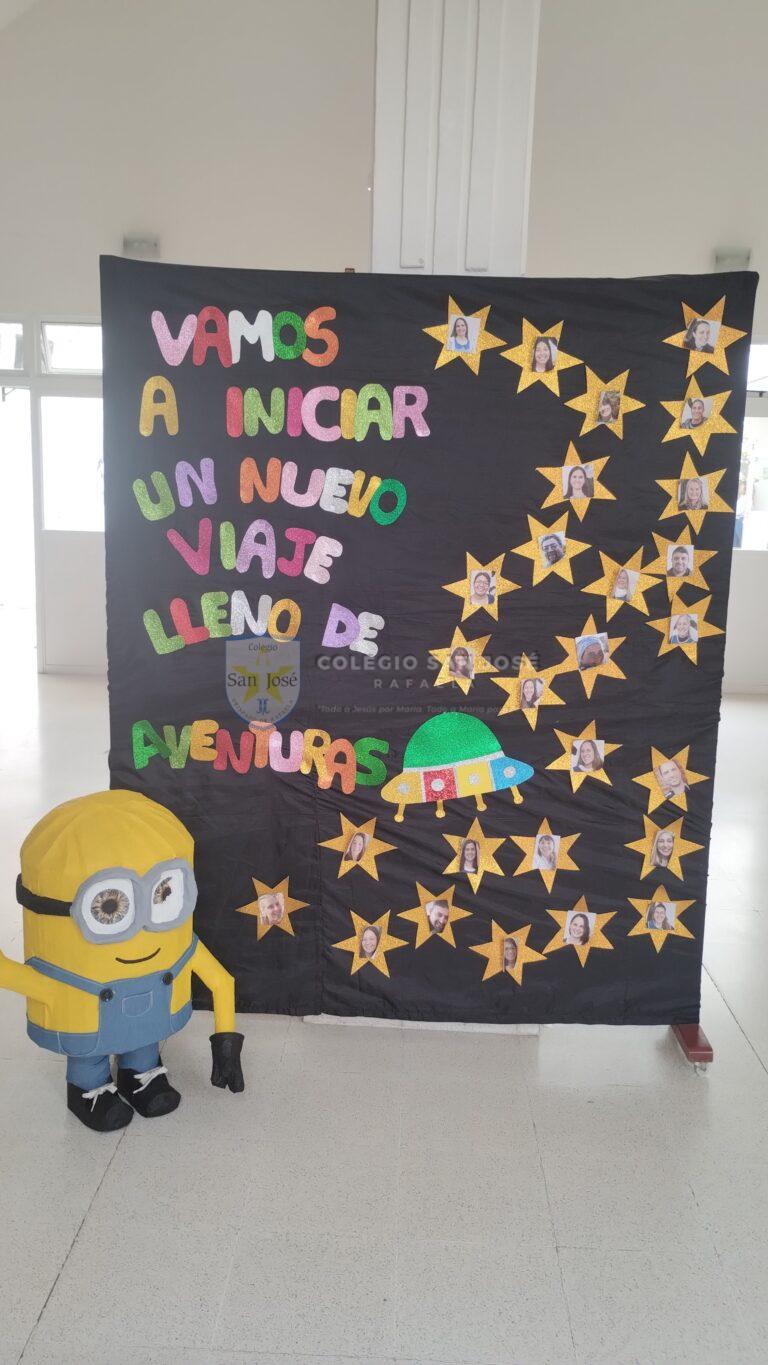 VAMOS
A INICIAR
UN NUEVO
VIAJE
LLENO DE
AVENTURAS
Colegio
San José
COLEGIO SAN JOSÉ
RAFAELA
"Todo a Jesús por María, Todo a María para